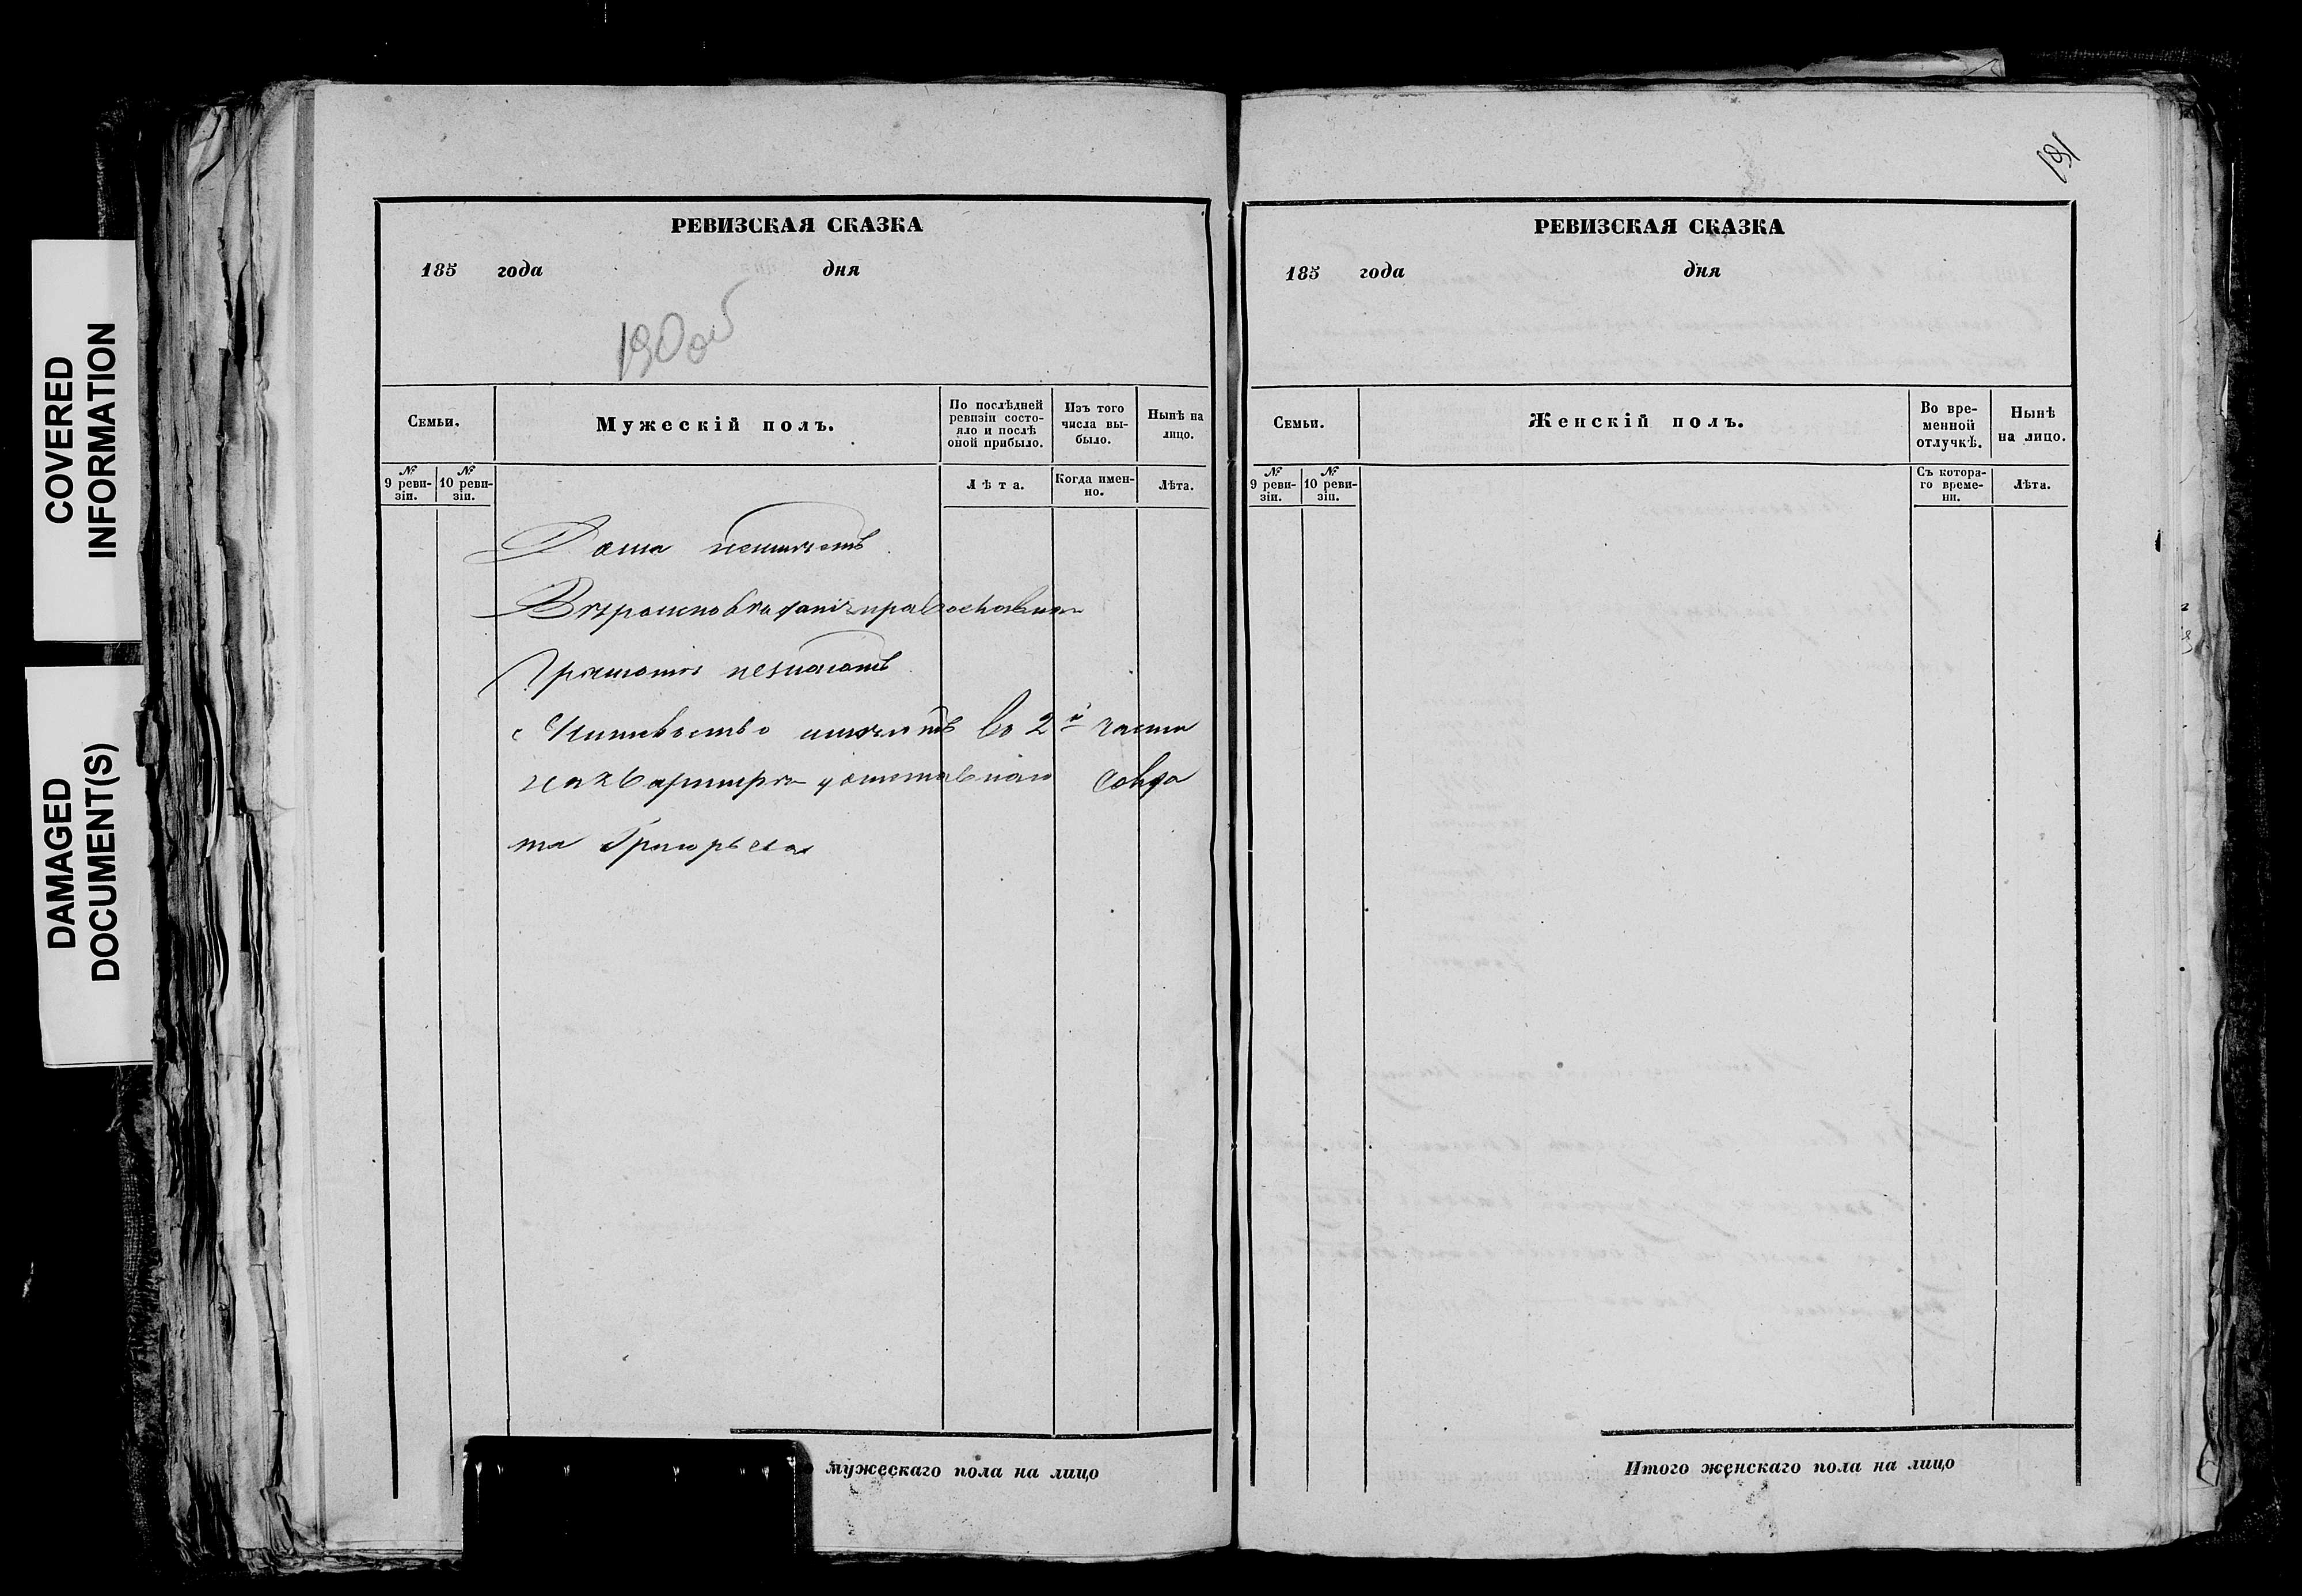 COVERED
INFORMATION
DAMAGED
DOCUMENT(S)
РЕВИЗСКАЯ СКАЗКА
185 года дня
190об
Семьи.
Мужескій полъ.
По послѣдней ревизіи состояло и послѣ оной прибыло.
Изъ того числа выбыло.
Нынѣ на лицо.
№ 9 ревизіи.
№ 10 ревизіи.
Лѣта.
Когда именно.
Лѣта.
Дома неимѣетъ
Вѣроисповѣданія православнаго
Грамоты незнаетъ
Жительство имѣетъ во 2й части
на квартирѣ у отставнаго солда
та Григорьева
мужескаго пола на лицо
191
РЕВИЗСКАЯ СКАЗКА
185 года дня
Семьи.
Женскій полъ.
Во временной отлучкѣ.
Нынѣ на лицо.
№ 9 ревизіи.
№ 10 ревизіи.
Съ котораго времени.
Лѣта.
Итого женскаго пола на лицо